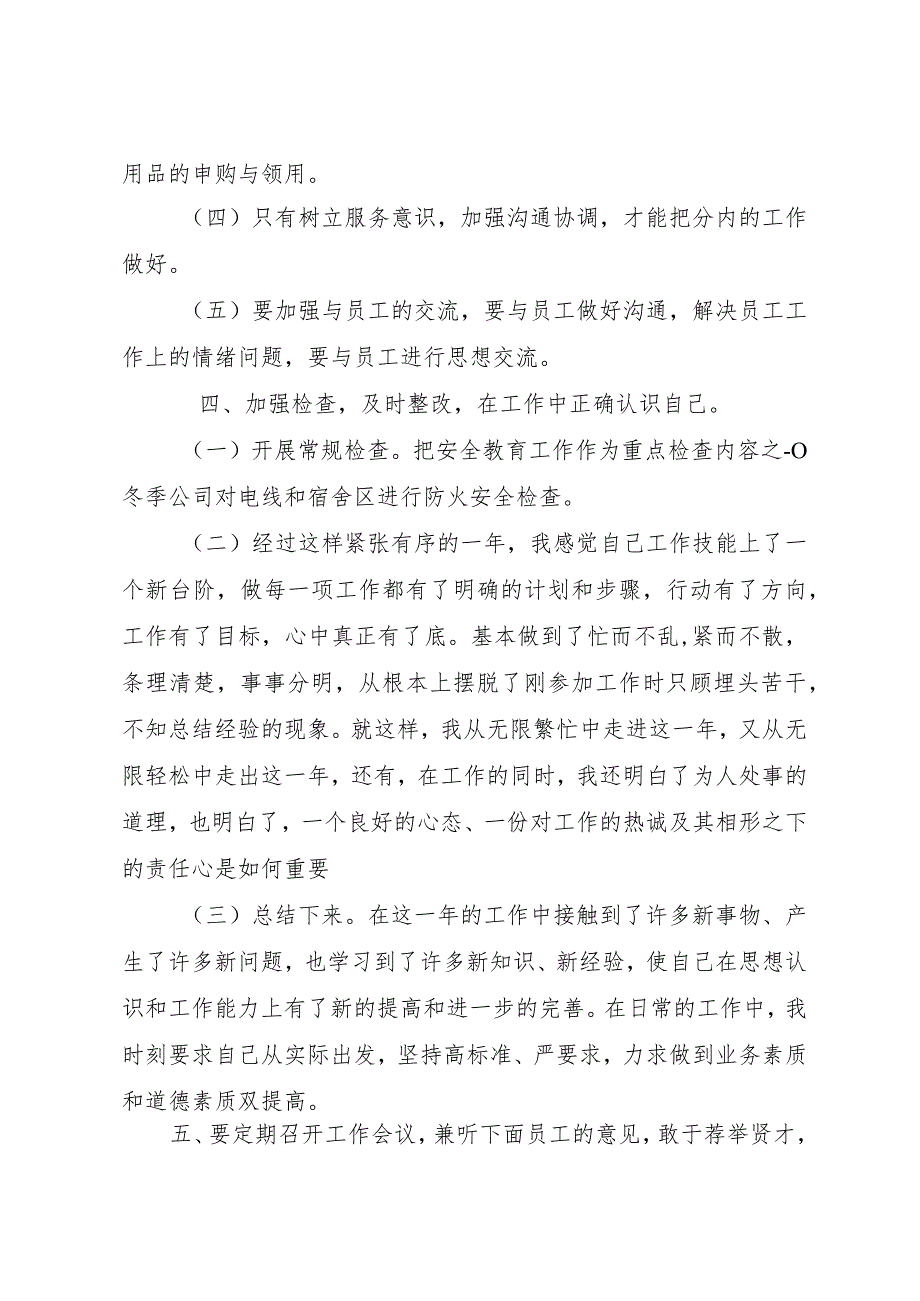 用品的申购与领用。
（四）只有树立服务意识，加强沟通协调，才能把分内的工作
做好。
（五）要加强与员工的交流，要与员工做好沟通，解决员工工
作上的情绪问题，要与员工进行思想交流。
四、加强检查，及时整改，在工作中正确认识自己。
（一）开展常规检查。把安全教育工作作为重点检查内容之-O
冬季公司对电线和宿舍区进行防火安全检查。
（二）经过这样紧张有序的一年，我感觉自己工作技能上了一
个新台阶，做每一项工作都有了明确的计划和步骤，行动有了方向，
工作有了目标，心中真正有了底。基本做到了忙而不乱,紧而不散，
条理清楚，事事分明，从根本上摆脱了刚参加工作时只顾埋头苦干，
不知总结经验的现象。就这样，我从无限繁忙中走进这一年，又从无
限轻松中走出这一年，还有，在工作的同时，我还明白了为人处事的
道理，也明白了，一个良好的心态、一份对工作的热诚及其相形之下
的责任心是如何重要
（三）总结下来。在这一年的工作中接触到了许多新事物、产
生了许多新问题，也学习到了许多新知识、新经验，使自己在思想认
识和工作能力上有了新的提高和进一步的完善。在日常的工作中，我
时刻要求自己从实际出发，坚持高标准、严要求，力求做到业务素质
和道德素质双提高。
五、要定期召开工作会议，兼听下面员工的意见，敢于荐举贤才，